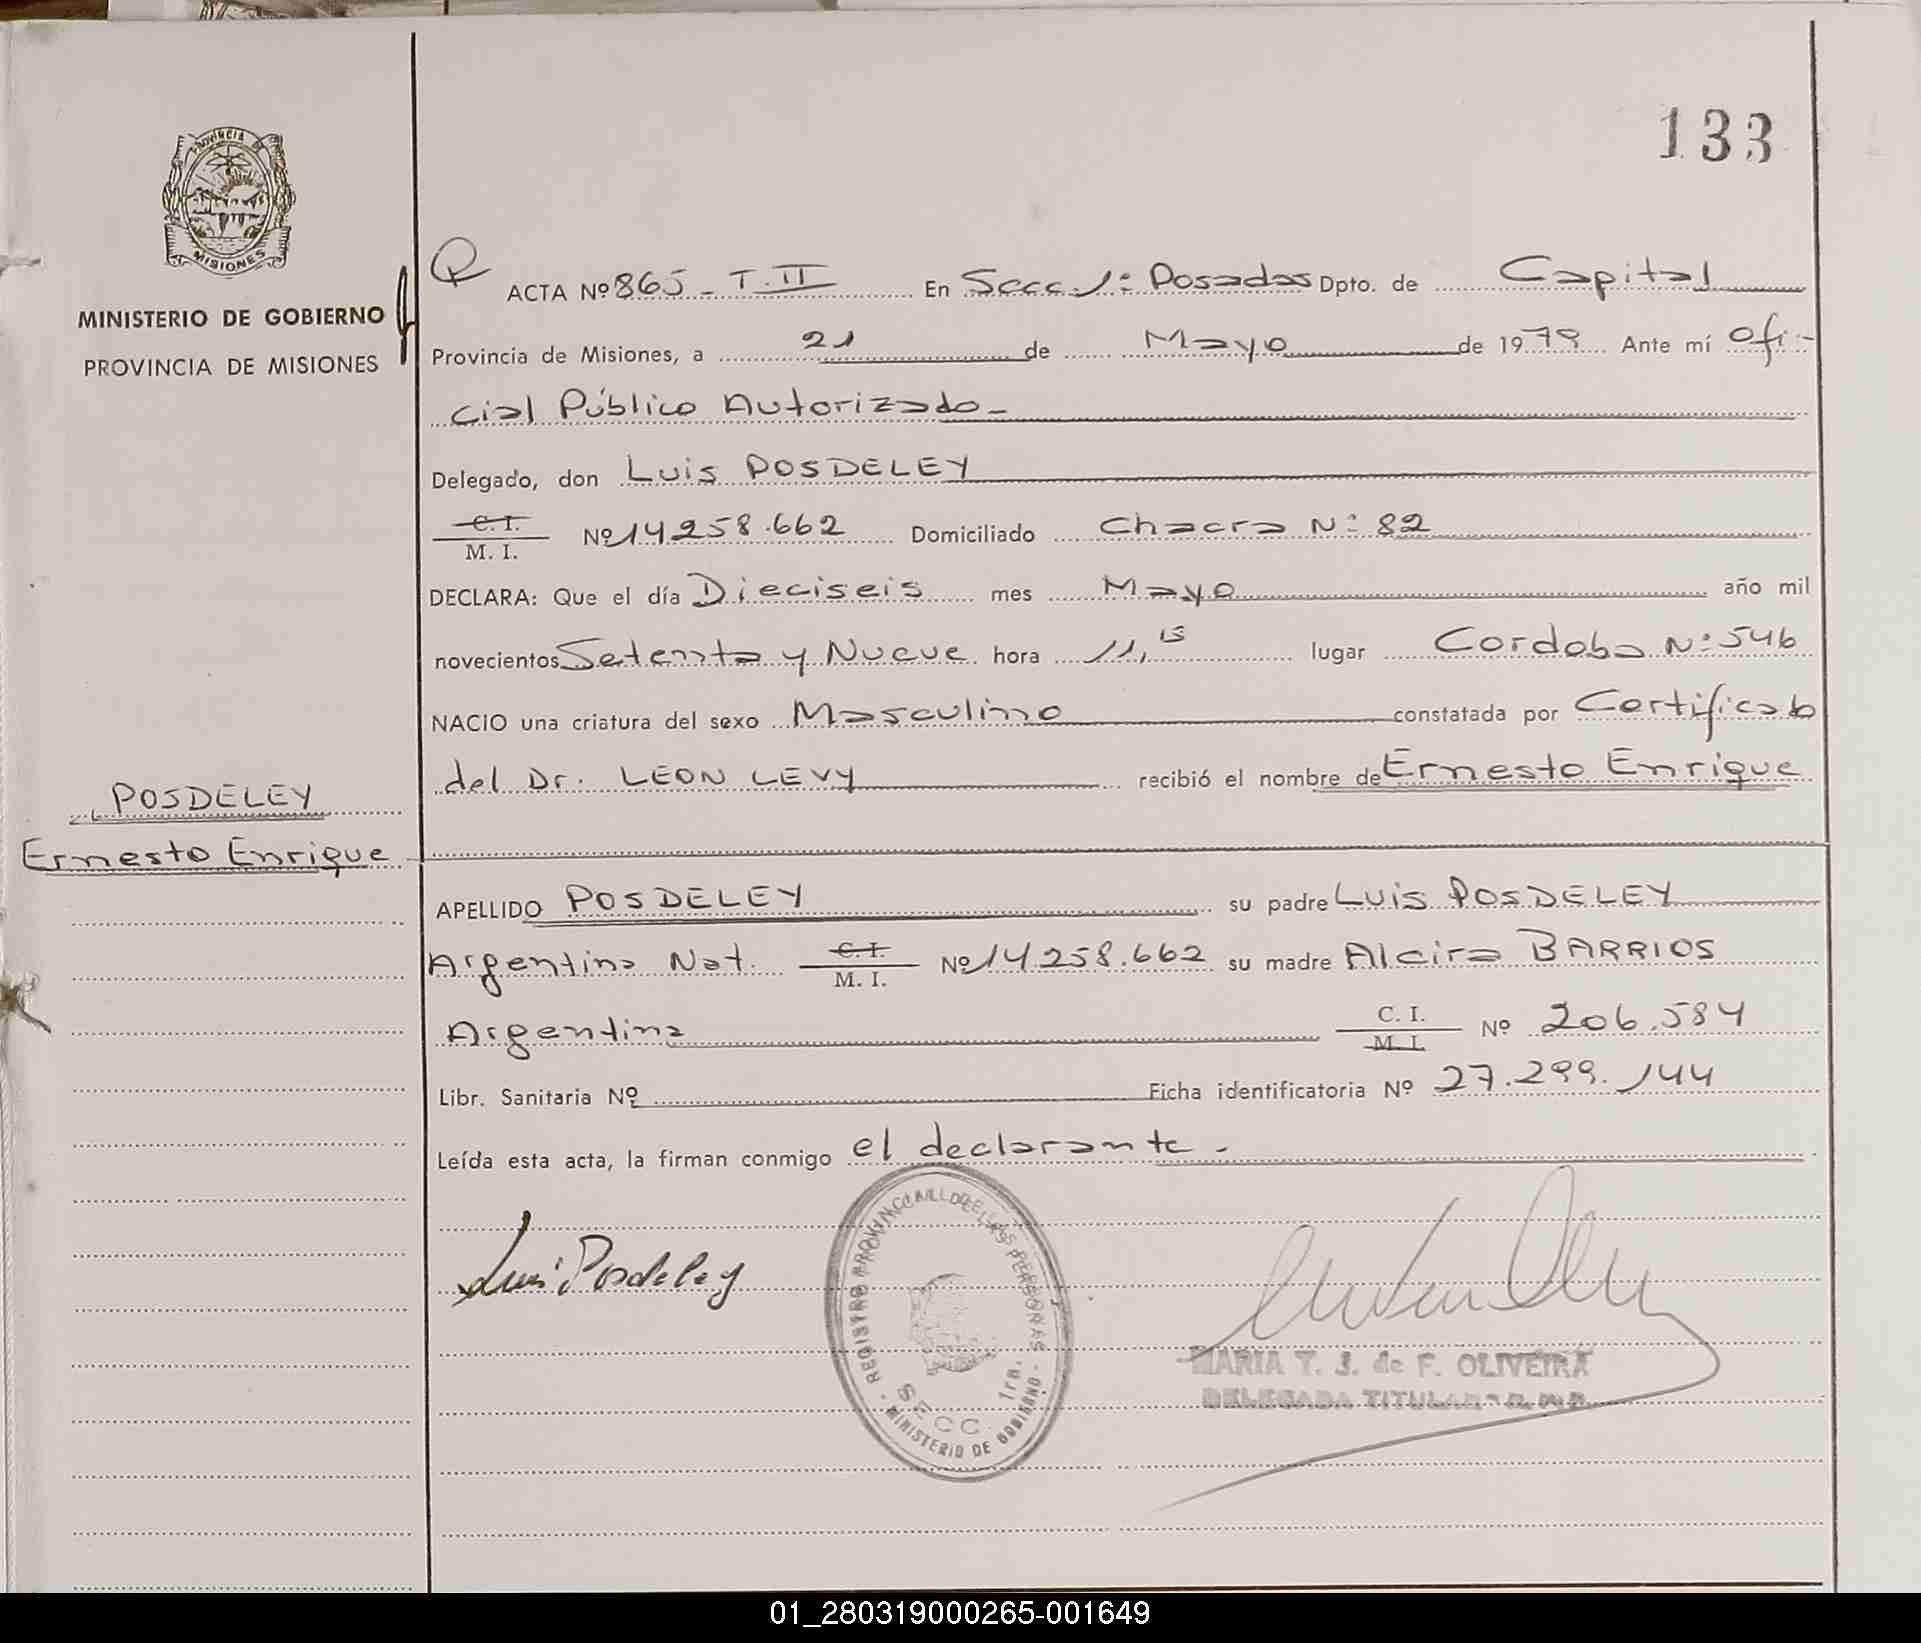 133
PROVINCIA DE
MISIONES
MINISTERIO DE GOBIERNO
PROVINCIA DE MISIONES
POSDELEY
Ernesto Enrique
ACTA Nº 865 - T. II En Secc. 1: Posadas Dpto. de Capital
Provincia de Misiones, a 21 de Mayo de 1979 Ante mí Ofi-
cial Público Autorizado -
Delegado, don Luis POSDELEY
C. I.
M. I. Nº 14258.662 Domiciliado Chacra N: 82
DECLARA: Que el día Dieciseis mes Mayo año mil
novecientos Setenta y Nueve hora 11,15 lugar Cordoba N: 546
NACIO una criatura del sexo Masculino constatada por Certificado
del Dr. LEON LEVY recibió el nombre de Ernesto Enrique
APELLIDO POSDELEY su padre Luis POSDELEY
Argentino Nat. C. I. M. I. Nº 14258.662 su madre Alcira BARRIOS
Argentina C. I. M. I. Nº 206.584
Libr. Sanitaria Nº Ficha identificatoria Nº 27.299.144
Leída esta acta, la firman conmigo el declarante -
Luis Posdeley
REGISTRO PROVINCIAL DE LAS PERSONAS
SECC. 1ra.
MINISTERIO DE GOBIERNO
MARIA T. J. de F. OLIVEIRA
DELEGADA TITULAR
01_280319000265-001649